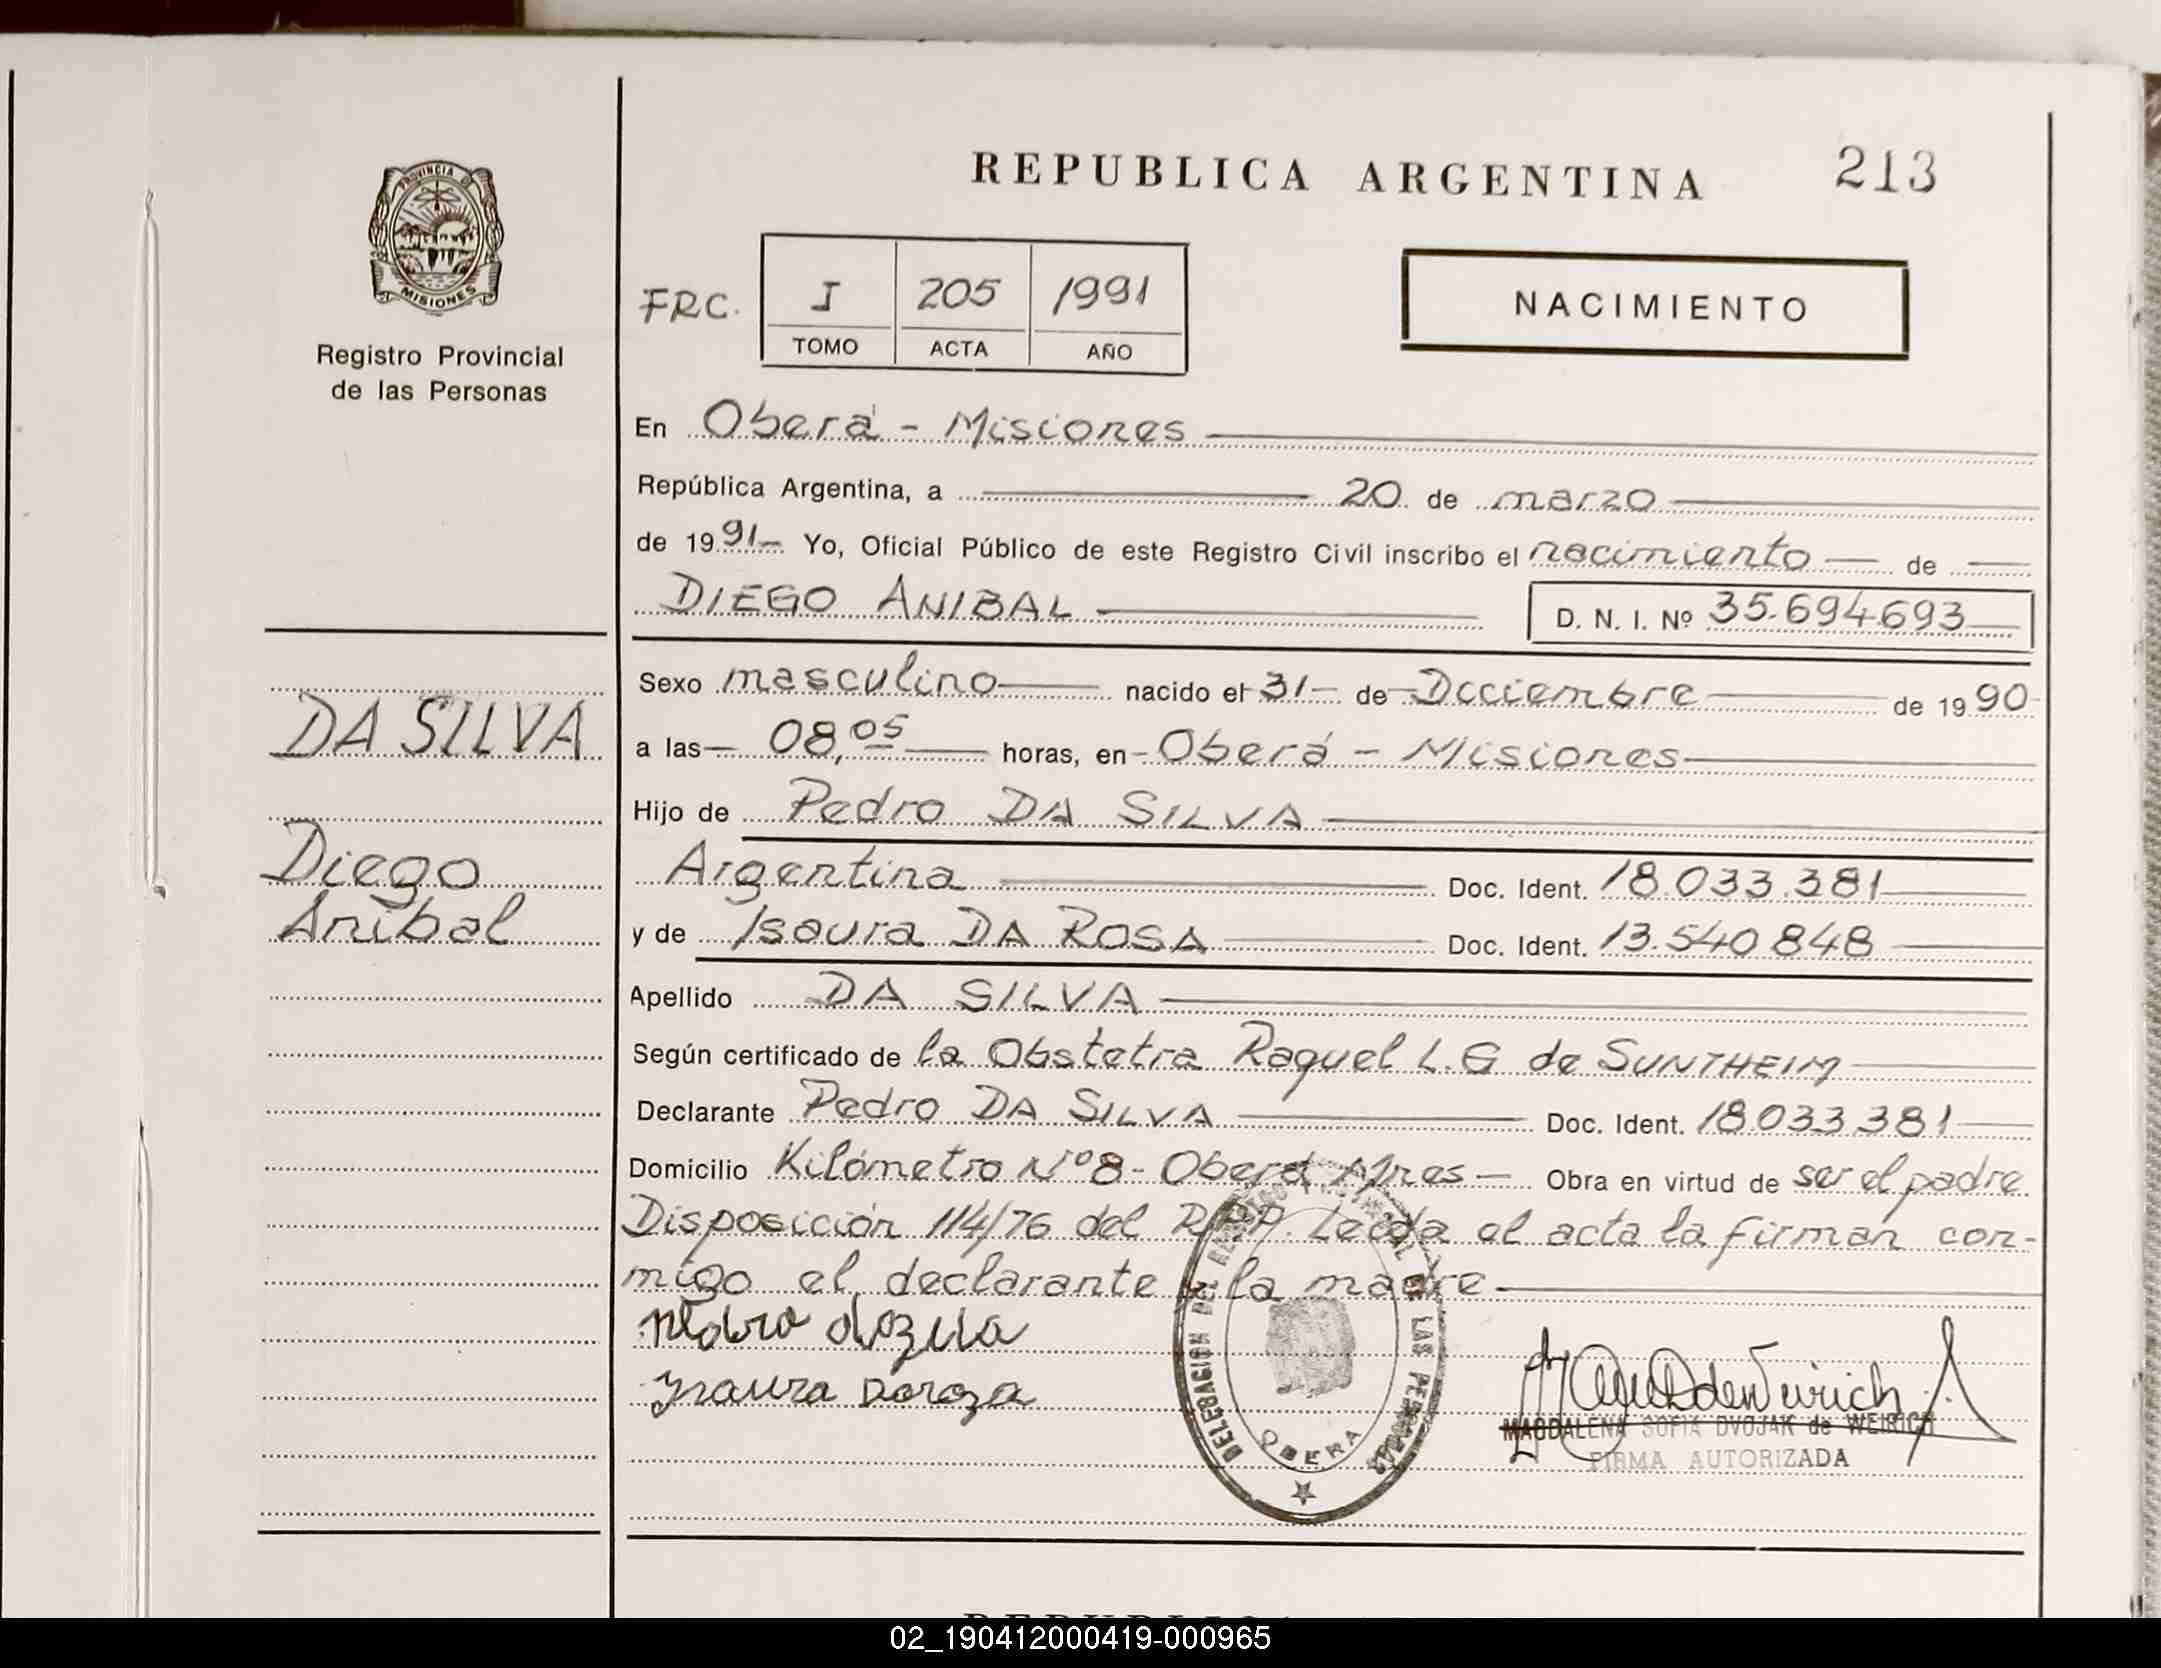 PROVINCIA DE
MISIONES
Registro Provincial
de las Personas
DA SILVA
Diego
Anibal
REPUBLICA ARGENTINA
213
FRC.
I 205 1991
TOMO ACTA AÑO
NACIMIENTO
En Oberá - Misiones
República Argentina, a 20 de marzo
de 1991 Yo, Oficial Público de este Registro Civil inscribo el nacimiento de
DIEGO ANIBAL D. N. I. Nº 35.694.693
Sexo masculino nacido el 31 de Dcciembre de 1990
a las 08,05 horas, en Oberá - Misiones
Hijo de Pedro DA SILVA
Argentina Doc. Ident. 18.033.381
y de Isaura DA ROSA Doc. Ident. 13.540.848
Apellido DA SILVA
Según certificado de la Obstetra Raquel L.G de SUNTHEIM
Declarante Pedro DA SILVA Doc. Ident. 18.033.381
Domicilio Kilómetro Nº 8 - Oberá Mnes Obra en virtud de ser el padre
Disposición 114/76 del R.P.P. Leida el acta la firman con-
migo el declarante la madre
Isaura Daroza
DELEGACION DEL REGISTRO PROVINCIAL DE LAS PERSONAS
OBERA
MAGDALENA SOFIA DVOJAK de WEIRICH
FIRMA AUTORIZADA
02_190412000419-000965